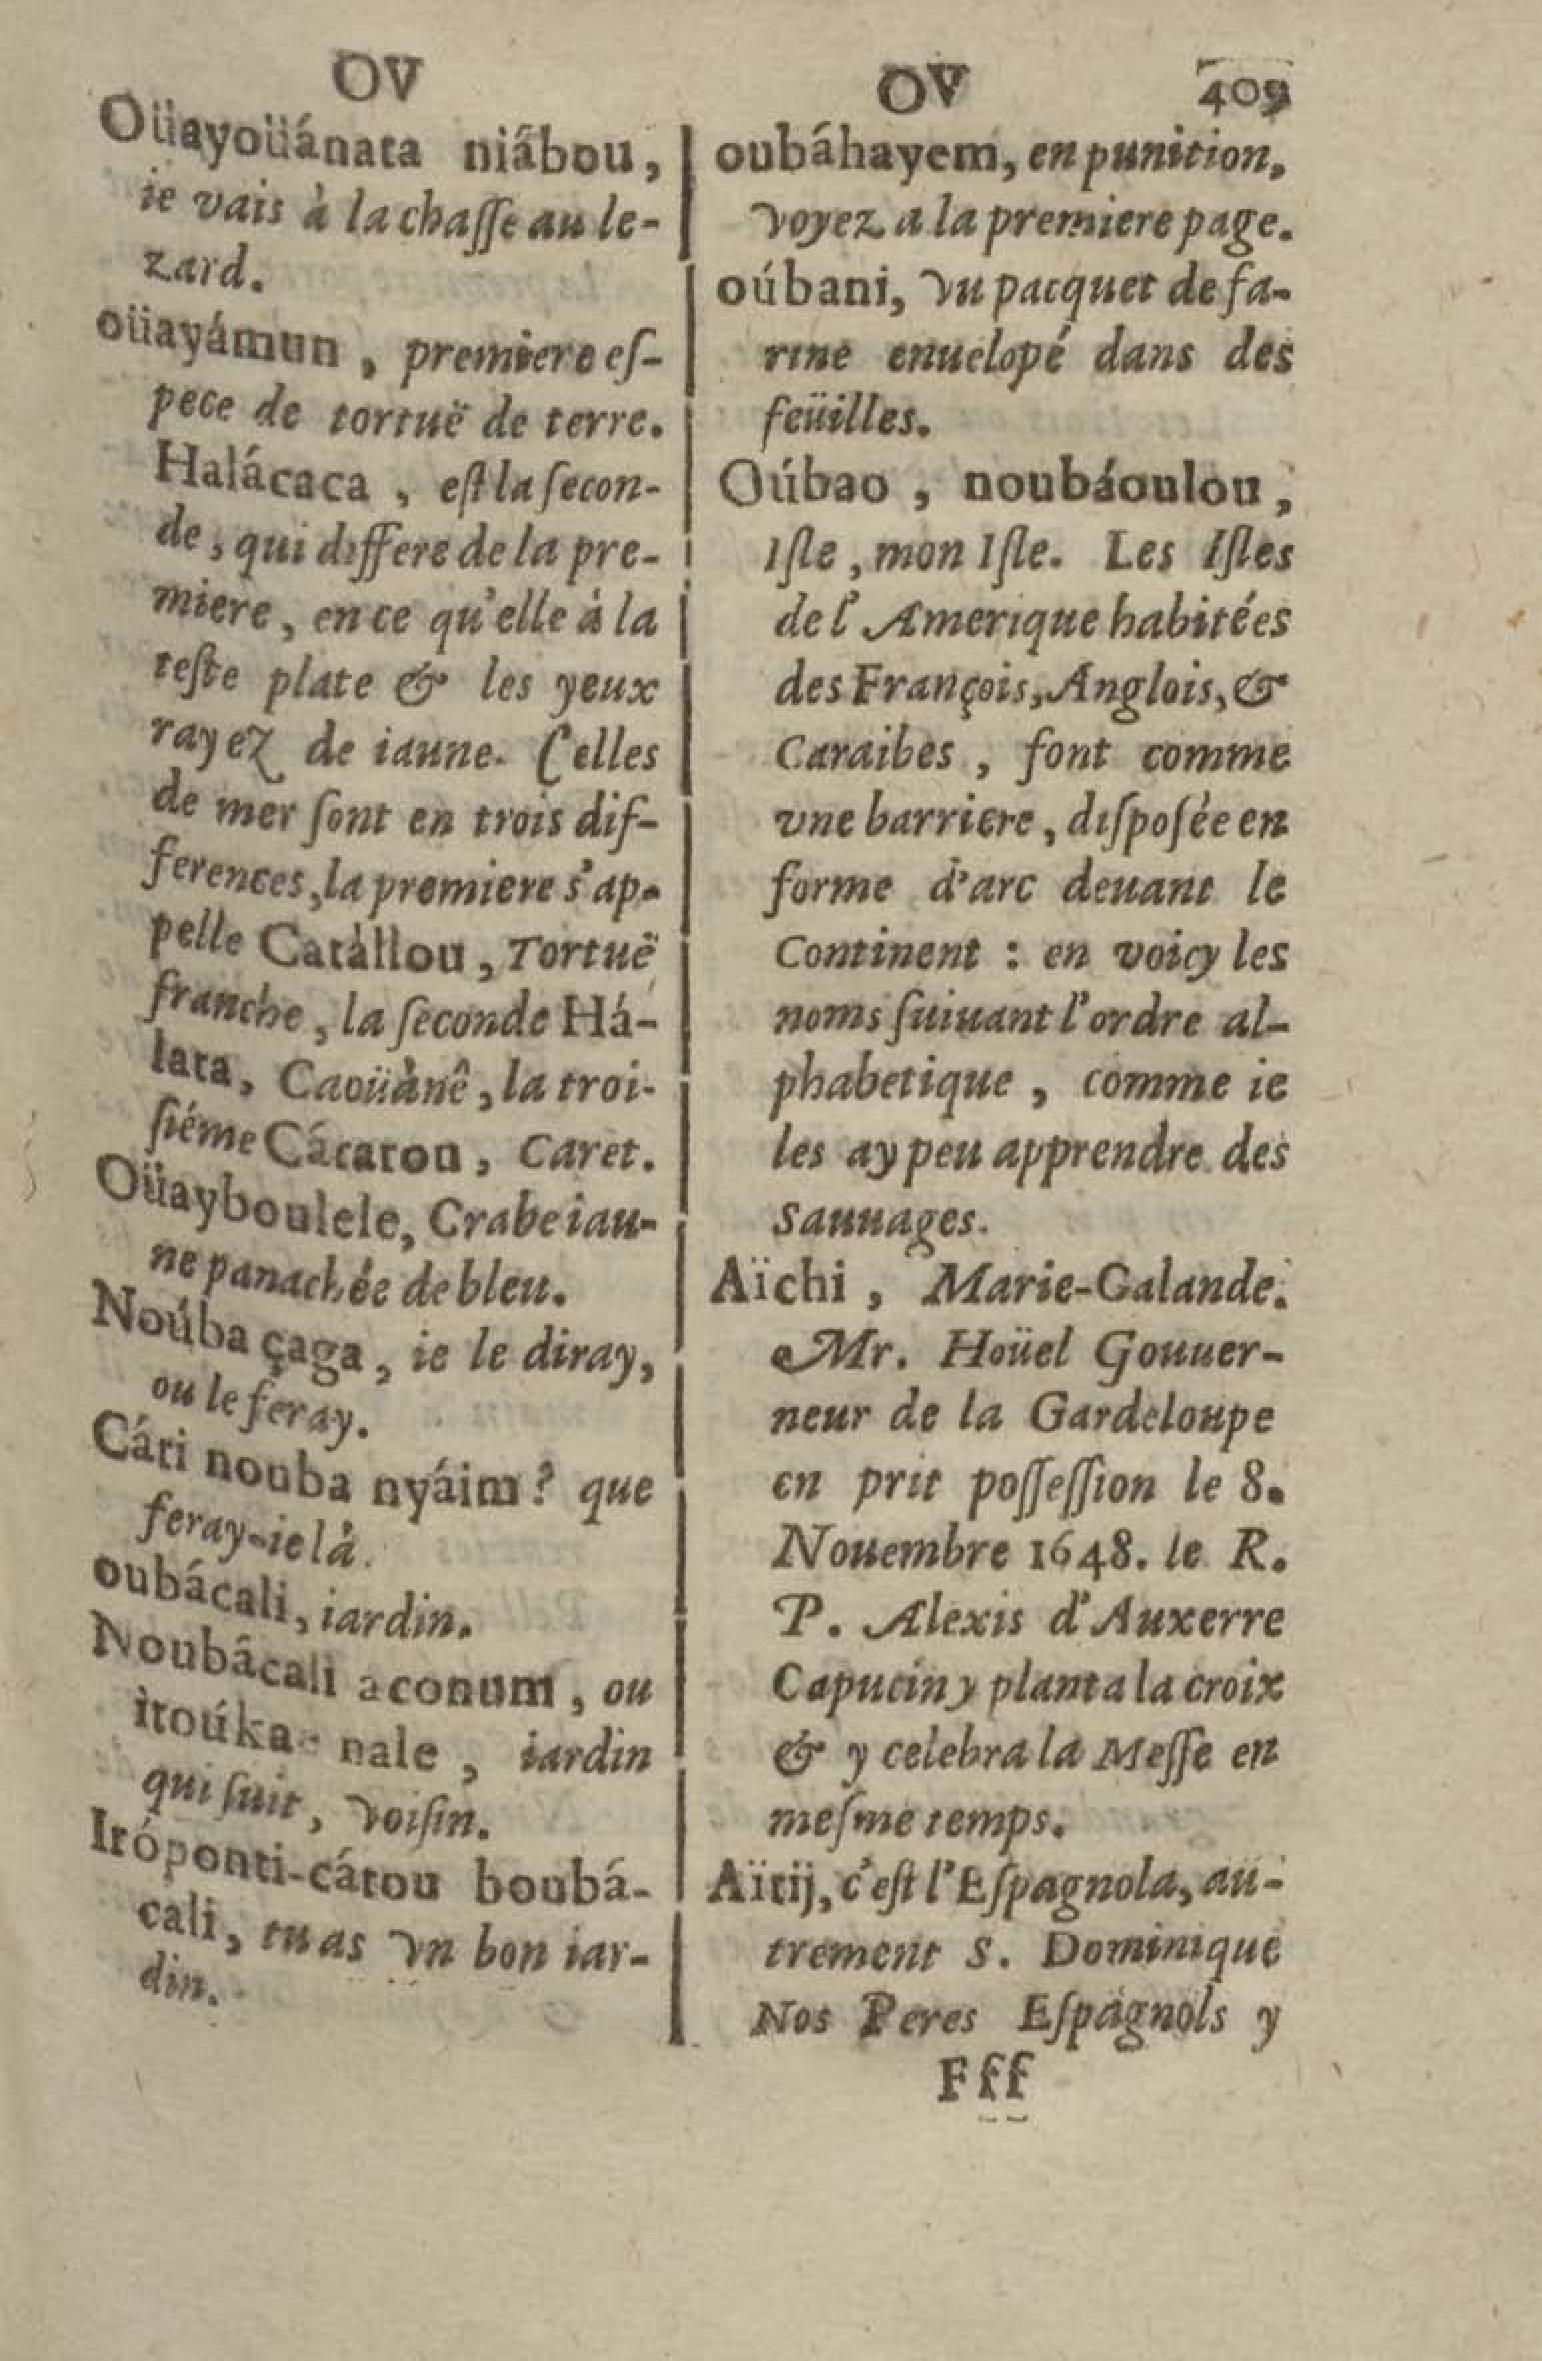 OV
Oüayoüánata niábou,
ie vais à la chaſſe au le-
zard.
oüayámun, premiere eſ-
pece de tortuë de terre.
Halácaca, eſt la ſecon-
de, qui differe de la pre-
miere, en ce qu'elle à la
teſte plate & les yeux
rayez de iaune. Celles
de mer ſont en trois dif-
ferences, la premiere s'ap-
pelle Catàllou, Tortuë
franche, la ſeconde Há-
lata, Caoüànê, la troi-
ſiéme Cácarou, Caret.
Oüayboulele, Crabe iau-
ne panachée de bleu.
Noúba çaga, ie le diray,
ou le feray.
Cáti nouba nyáim? que
feray-ie là.
oubácali, iardin.
Noubácali aconum, ou
itoúka-nale, iardin
qui ſuit, voiſin.
Iróponti-cátou boubá-
cali, tu as vn bon iar-
din.
OV 409
oubáhayem, en punition,
voyez a la premiere page.
oúbani, vu pacquet de fa-
rine enuelopé dans des
feüilles.
Oúbao, noubáoulou,
Iſle, mon Iſle. Les Iſles
de l'Amerique habitées
des François, Anglois, &
Caraibes, font comme
vne barriere, diſpoſée en
forme d'arc deuant le
Continent : en voicy les
noms ſuiuant l'ordre al-
phabetique, comme ie
les ay peu apprendre des
Sauuages.
Aïchi, Marie-Galande.
Mr. Hoüel Gouuer-
neur de la Gardeloupe
en prit poſſeſſion le 8.
Nouembre 1648. le R.
P. Alexis d'Auxerre
Capucin y planta la croix
& y celebra la Meſſe en
meſme temps.
Aïtij, c'eſt l'Eſpagnola, au-
trement S. Dominique
Nos Peres Eſpagnols y
Fff